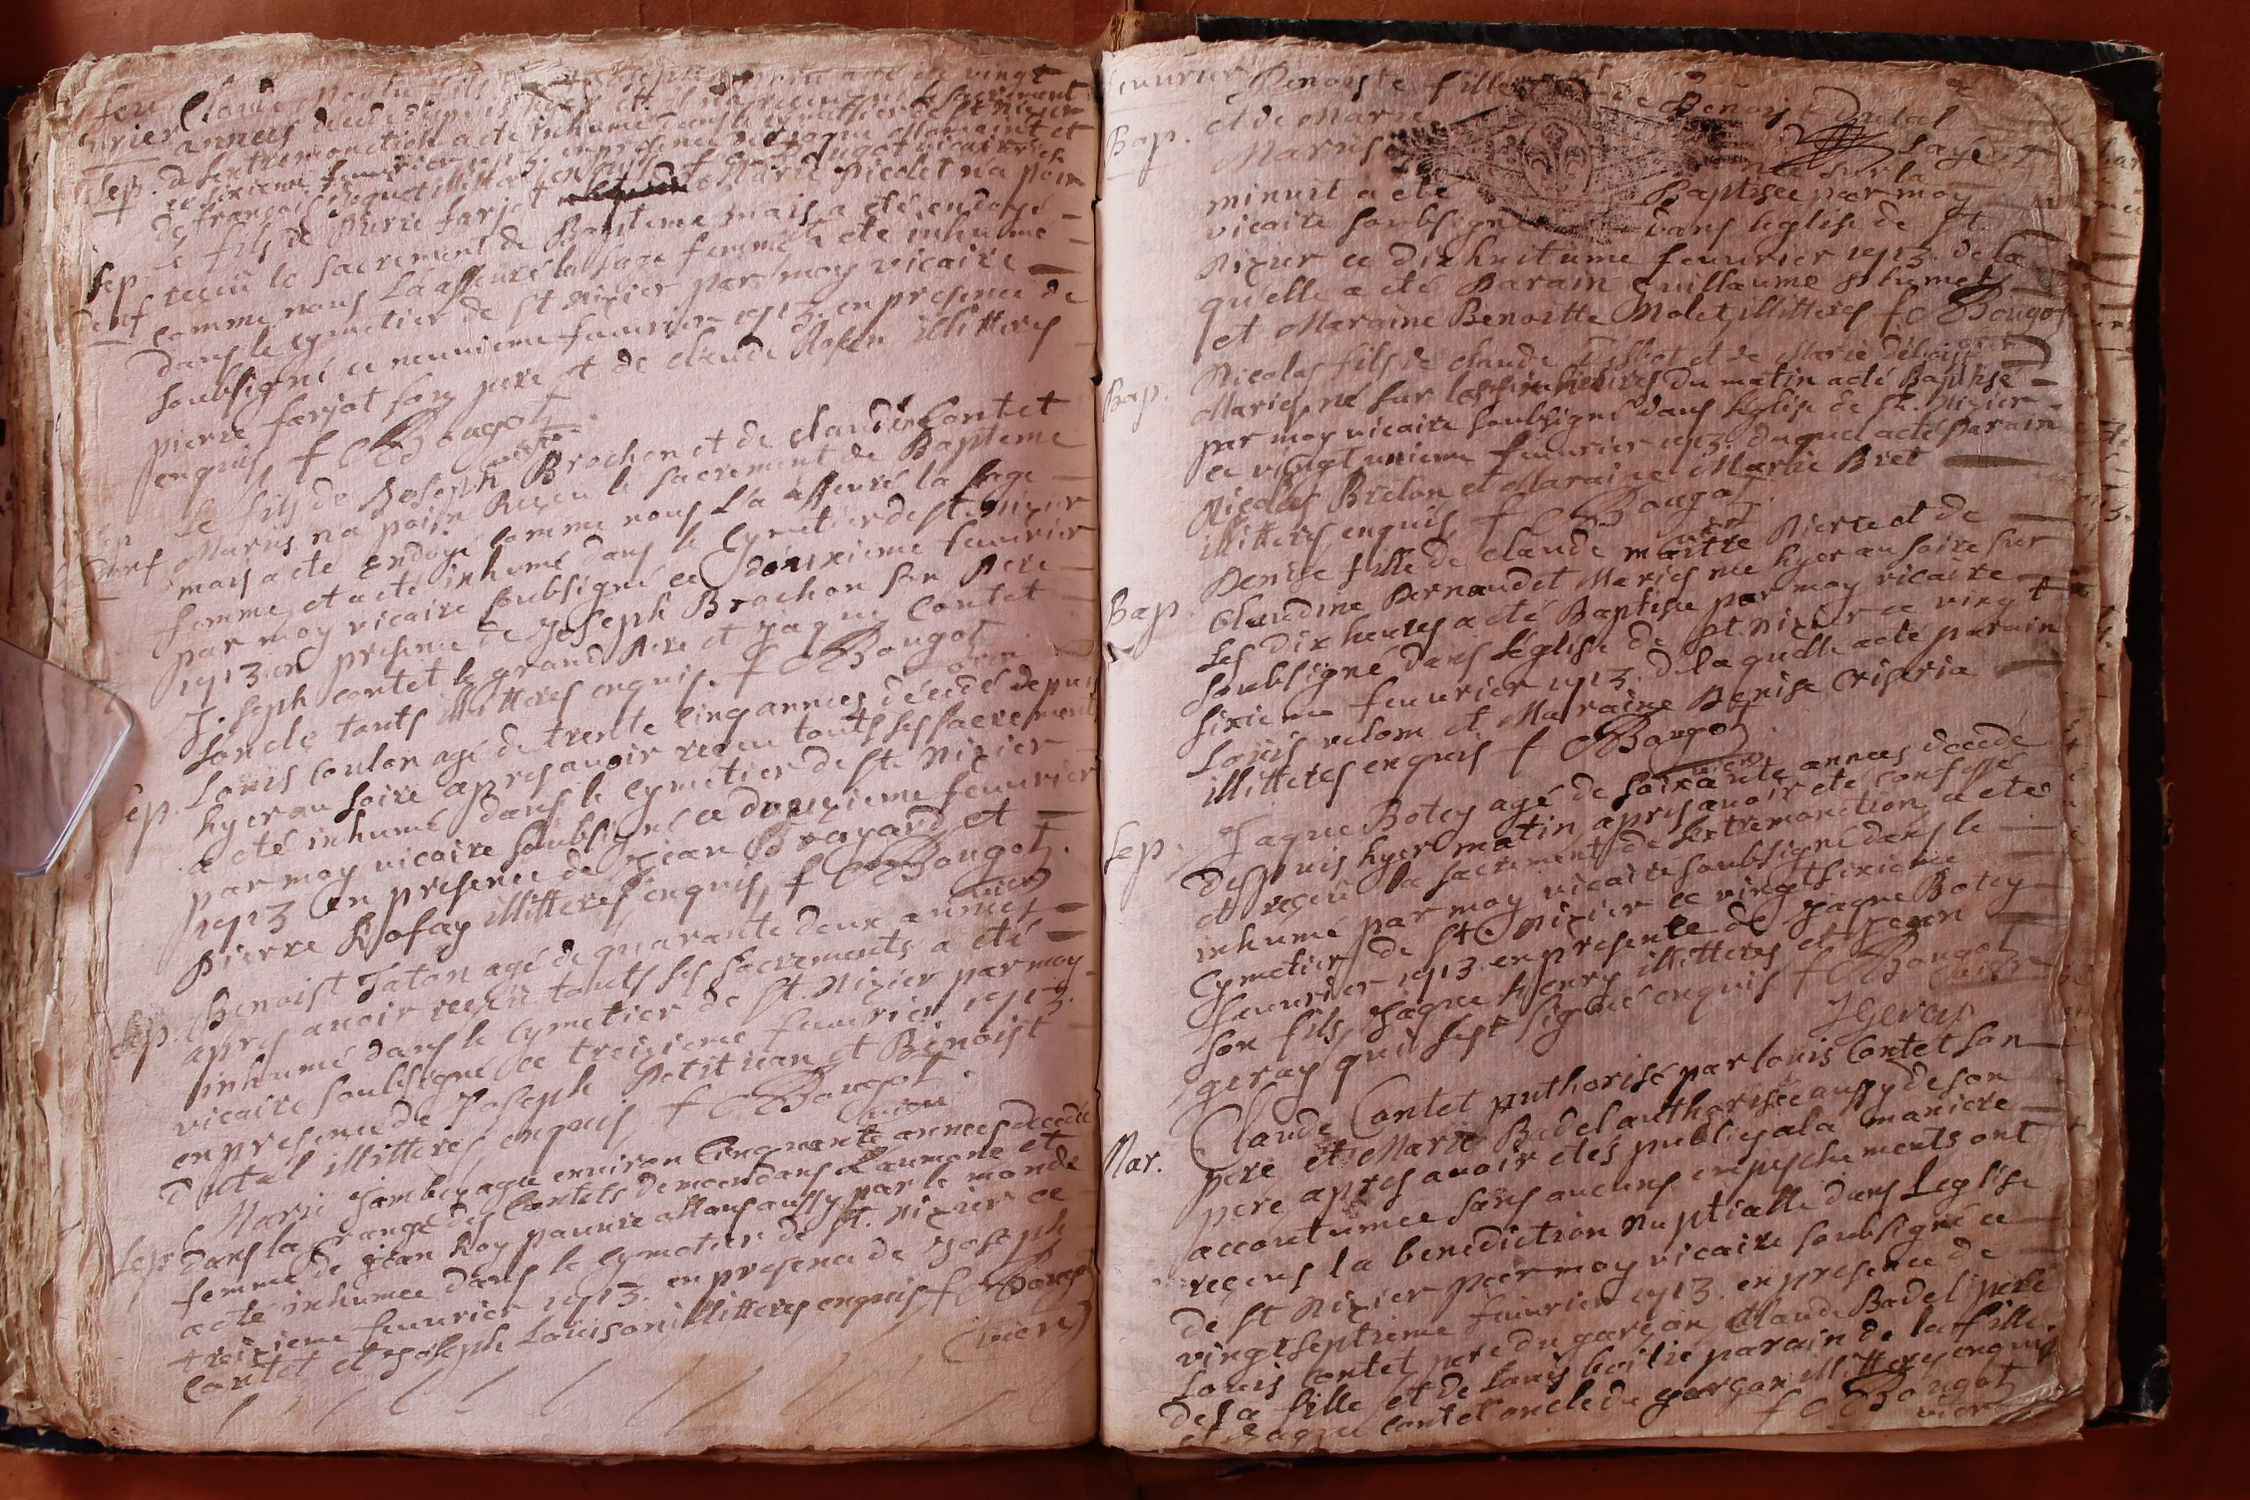 feu
urier Claude
annees decede depuis hyer et
de lextremonction a ete inhumé dans le cymetier de St Nizier
Sep.
ce sixieme feuurier 1713. en presence
de françois
e fils de Pierre farjot et de Marie Picolet na poin
Sep receu le sacrement de Bapteme mais a ete endoyé
denf comme nous la asseuré la sage femme a ete inhumé
dans le cymetier de St Nizier par moy vicaire
soubsigné ce neuuieme feuurier 1713. en presence de
pierre farjot son pere et de claude illitteres
enquis f C Bougot
vicre
e fils de Joseph Brochon et de claudine Contet
Sep Mariés na poin Receu le sacrement de Bapteme
denf mais a ete endoyé comme nous l'a asseuré la sage
femme et a eté inhumé dans le Cymetier de St. Nizier
par moy vicaire soubsigné ce douzieme feuurier
1713. en presence de Joseph Brochon son Pere
Joseph contet le grand Pere et jaque Contet
son cle touts illitteres enquis. f C Bougot
vicre
Louis Coulon agé de trente cinq annees décedé depuis
Sep. hyer au soire apres auoir receu touts ses sacrements
a eté inhumé dans le Cymetier de St. Nizier
par moy vicaire soubsigné ce douzieme feuurier
1713 en presence de Jean Brayand et
pierre Rofay illitteres enquis f C Bougot.
vicre
Sep. Benoist Taton agé de quarante deux annees
apres auoir receu touts ses sacrements a eté
inhumé dans le cymetier de St. Nizier par moy
vicaire soubsigné ce treizieme feuurier 1713.
en presence de Joseph Petit jean et Benoist
dutal illitteres enquis f C Bougot.
vicre
Marie Jambey agee enuiron Cinquante annees decedé
Sep dans la Grange des Contets demendans l'aumone et
femme de jean Roy pauure allans aussy par le monde
a eté inhumee dans le cymetier de St. Nizier ce
treizieme feuurier 1713. en presence de Joseph
Contet et Joseph Louison illitteres enquis f C Bougot
vicre
feuurier Benoiste fille de Benoist Dutal
Bap. et de Marie
Mariés sur la
minuit a ete Baptisee par moy
vicaire soubsigné dans leglise de St.
Nizier ce dixhuitieme feuurier 1713. de la
qu'elle a eté Parain Guillaume
et Maraine Benoitte Molet illitteres f C Bougot
vicre
Bap. Nicolas fils de claude et de Marie
Mariés, né sur les heures du matin a eté Baptisé
par moy vicaire soubsigné dans l'eglise de St. Nizier
ce vingt unieme feuurier 1713. duquel a eté Parain
Nicolas Breton et Maraine Marie Bret
illitteres enquis f C Bougot.
vicre
Denise fille de claude maitre Pierre et de
Bap. Claudine Pernaudet Mariés née hyer au soire sur
les dix heures a eté Baptisée par moy vicaire
soubsigné dans l'église de St. Nizier ce vingt
sixieme feuurier 1713. de laquelle a eté parain
Louis velom et Maraine Denise
illitteres enquis f C Bougot
vicre
Sep. Jaque Botey agé de soixante annees decede
despuis hyer matin apres auoir eté confessé
et receu le sacrement de lextremonction a eté
inhumé par moy vicaire soubsigné dans le
Cymetier de St. Nizier ce vingtsixieme
feuurier 1713. en presence de jaque Botey
son fils, Jaque henry illitteres et Jean
geray qui sest signé enquis f C Bougot
JGeray vicre
Mar. Claude Contet authorisé par louis Contet son
pere et Marie Badel authorisée aussy de son
pere apres auoir etés publies a la maniere
accoutumee sans aucuns empechements ont
receus la benediction nuptialle dans L'eglise
de St Nizier par moy vicaire soubsigné ce
vingtseptieme feuurier 1713. en presence de
Louis Contet pere du garçon Claude Badel pere
de la fille et de Louis parain de la fille
et Jaque Contet oncle du garçon illitteres enquis
f C Bougot
vicre